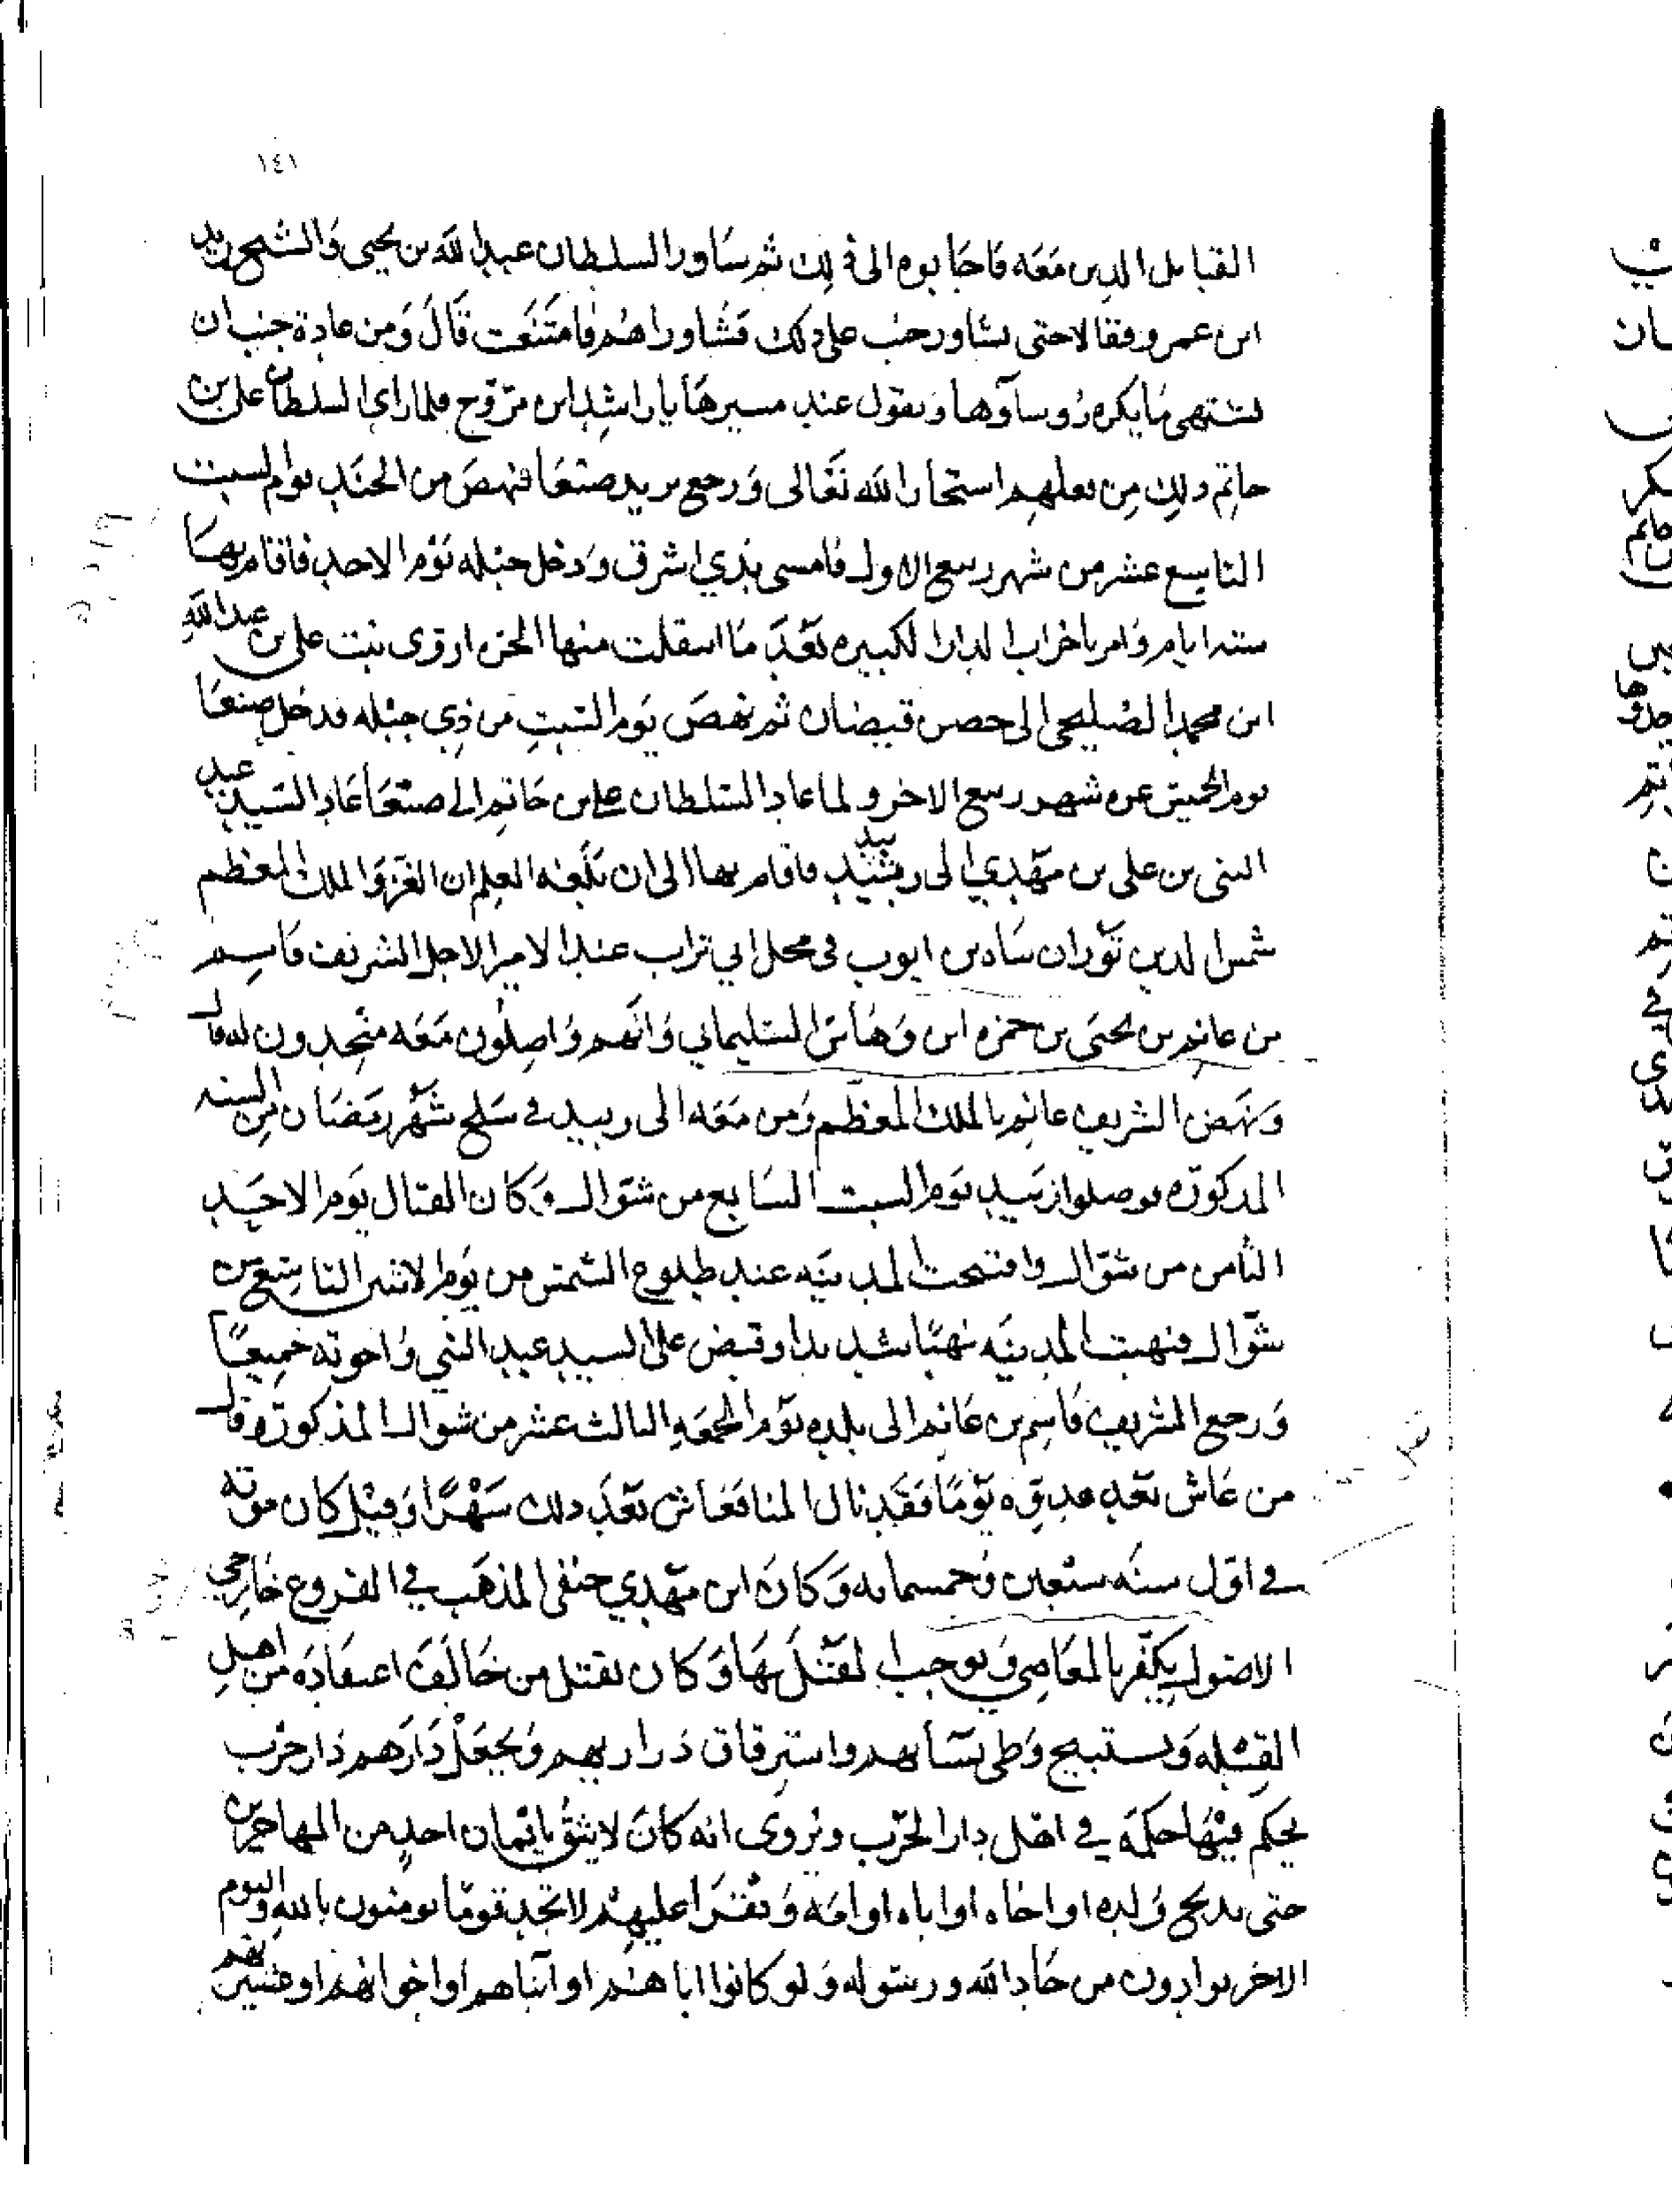 ١٤١
القبايل الذين معه فاجابوه الى ذلك ثم شاور السلطان عبد الله بن يحيى والشيخ زيد
ابن عمرو فقالا حتى نشاور جنب على ذلك فشاوراهم فامتنعت قال ومن عادة جنب ان
تشتهي ما يكره روساوها ويقول عند مسيرها يا راشد ابن تزوج فلما راى السلطان على بن
حاتم ذلك من فعلهم استخار الله تعالى ورجع يريد صنعا فنهض من الجند يوم السبت
التاسع عشر من شهر ربيع الاول فامسى بذي اشرق ودخل جبله يوم الاحد فاقام بها
ستة ايام وامر باخراب الدار الكبيره بعد ما انتقلت منها الحره اروى بنت علي بن عبد الله
ابن محمد الصليحي الى حصن قيضان ثم نهض يوم السبت من ذي جبله فدخل صنعا
يوم الخميس غره شهر ربيع الاخر ولما عاد السلطان على بن حاتم الى صنعا عاد السيد عبد
النبي بن علي بن مهدي الى زبيد فاقام بها الى ان بلغه العلم ان الغز والملك المعظم
شمس الدين توران شاه بن ايوب في محل ابي تراب عند الامير الاجل الشريف قاسم
بن غانم بن يحيى بن حمزه ابن وهاس السليماني وانهم واصلون معه منجدون له قال
ونهض الشريف غانم بالملك المعظم ومن معه الى زبيد في سلخ شهر رمضان من السنه
المذكوره فوصلوا زبيد يوم السبت السابع من شوال وكان القتال يوم الاحد
الثامن من شوال وافتتحت المدينه عند طلوع الشمس من يوم الاثنين التاسع من
شوال فنهبت المدينه نهبا شديدا وقبض على السيد عبد النبي واخوته جميعا
ورجع الشريف قاسم بن غانم الى بلده يوم الجمعه الثالث عشر من شوال المذكوره وقال
من عاش بعد عدوه يوما فقد نال المنا فعاش بعد ذلك شهرا وقيل كان موته
في اول سنه سبعين وخمسمايه وكان ابن مهدي حنفي المذهب في الفروع خارجي
الاصول يكفر بالمعاصي ويوجب القتل بها وكان يقتل من خالف اعتقاده من اهل
القبله ويستبيح وطي نسآهم واسترقاق ذراريهم ويجعل دارهم دار حرب
يحكم فيها حكمه في اهل دار الحرب ويروى انه كان لا يثق بايمان احد من المهاجرين
حتى يذبح ولده او اخاه او اباه او امه ويقرا عليهم لا تجد قوما يومنون بالله واليوم
الاخر يوادون من حاد الله ورسوله ولو كانوا اباهم او ابناهم او اخوانهم او عشيرتهم